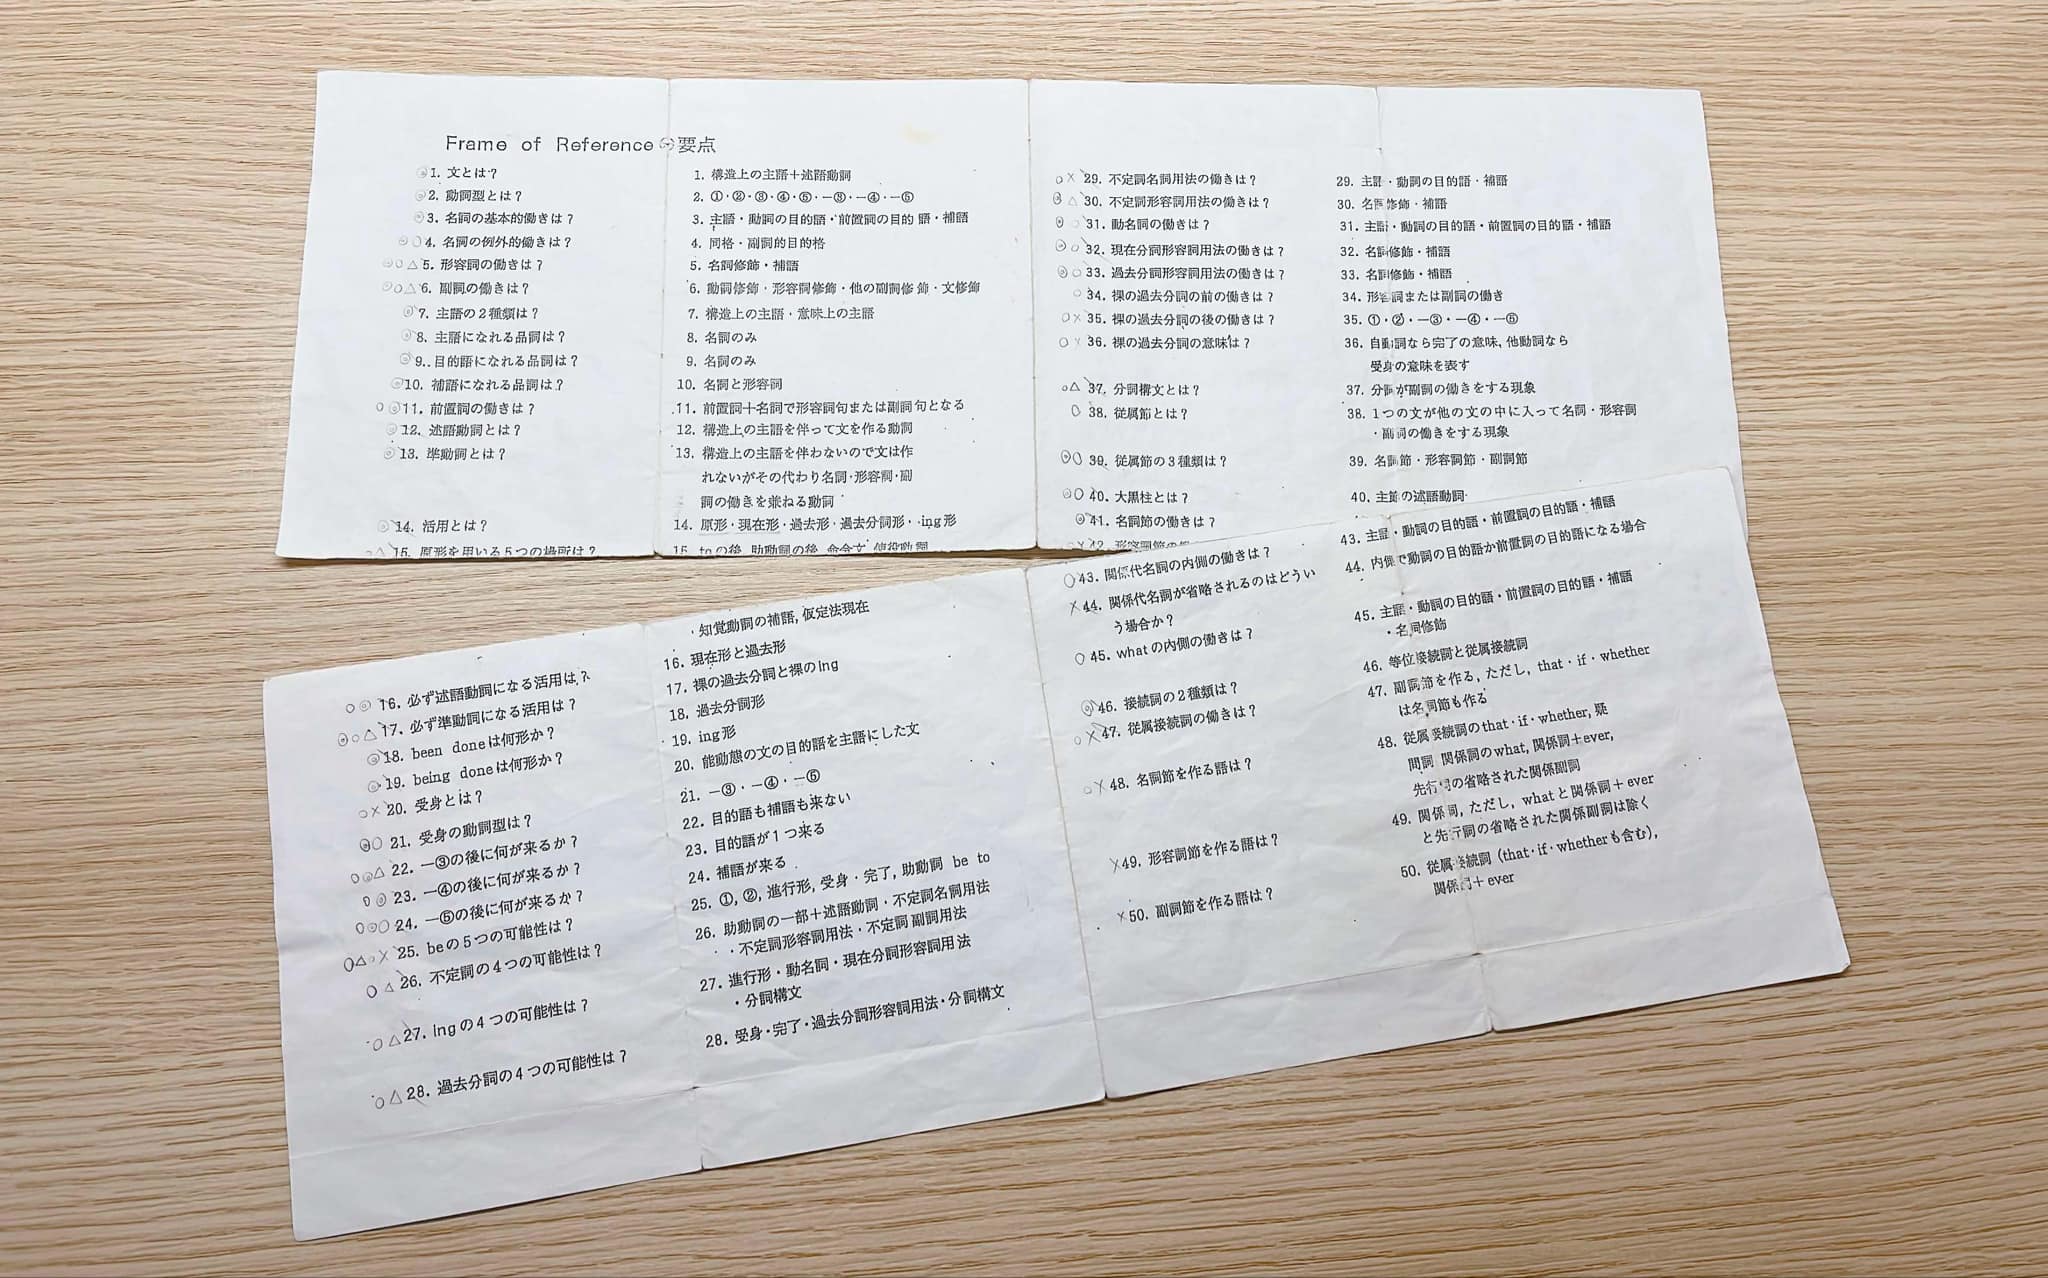 Frame of Reference の要点
1. 文とは?
2. 動詞型とは?
3. 名詞の基本的働きは?
4. 名詞の例外的働きは?
5. 形容詞の働きは?
6. 副詞の働きは?
7. 主語の2種類は?
8. 主語になれる品詞は?
9. 目的語になれる品詞は?
10. 補語になれる品詞は?
11. 前置詞の働きは?
12. 述語動詞とは?
13. 準動詞とは?
14. 活用とは?
15. 原形を用いる5つの場所は?
1. 構造上の主語+述語動詞
2. ①・②・③・④・⑤・−③・−④・−⑤
3. 主語・動詞の目的語・前置詞の目的語・補語
4. 同格・副詞的目的格
5. 名詞修飾・補語
6. 動詞修飾・形容詞修飾・他の副詞修飾・文修飾
7. 構造上の主語・意味上の主語
8. 名詞のみ
9. 名詞のみ
10. 名詞と形容詞
11. 前置詞+名詞で形容詞句または副詞句となる
12. 構造上の主語を伴って文を作る動詞
13. 構造上の主語を伴わないので文は作
れないがその代わり名詞・形容詞・副
詞の働きを兼ねる動詞
14. 原形・現在形・過去形・過去分詞形・ing形
15. toの後, 助動詞の後, 命令文, 使役動詞
29. 不定詞名詞用法の働きは?
30. 不定詞形容詞用法の働きは?
31. 動名詞の働きは?
32. 現在分詞形容詞用法の働きは?
33. 過去分詞形容詞用法の働きは?
34. 裸の過去分詞の前の働きは?
35. 裸の過去分詞の後の働きは?
36. 裸の過去分詞の意味は?
37. 分詞構文とは?
38. 従属節とは?
39. 従属節の3種類は?
40. 大黒柱とは?
41. 名詞節の働きは?
42. 形容詞節の
29. 主語・動詞の目的語・補語
30. 名詞修飾・補語
31. 主語・動詞の目的語・前置詞の目的語・補語
32. 名詞修飾・補語
33. 名詞修飾・補語
34. 形容詞または副詞の働き
35. ①・②・−③・−④・−⑤
36. 自動詞なら完了の意味, 他動詞なら
受身の意味を表す
37. 分詞が副詞の働きをする現象
38. 1つの文が他の文の中に入って名詞・形容詞
・副詞の働きをする現象
39. 名詞節・形容詞節・副詞節
40. 主節の述語動詞
16. 必ず述語動詞になる活用は?
17. 必ず準動詞になる活用は?
18. been doneは何形か?
19. being doneは何形か?
20. 受身とは?
21. 受身の動詞型は?
22. −③の後に何が来るか?
23. −④の後に何が来るか?
24. −⑤の後に何が来るか?
25. beの5つの可能性は?
26. 不定詞の4つの可能性は?
27. ingの4つの可能性は?
28. 過去分詞の4つの可能性は?
・知覚動詞の補語, 仮定法現在
16. 現在形と過去形
17. 裸の過去分詞と裸のing
18. 過去分詞形
19. ing形
20. 能動態の文の目的語を主語にした文
21. −③・−④・−⑤
22. 目的語も補語も来ない
23. 目的語が1つ来る
24. 補語が来る
25. ①, ②, 進行形, 受身・完了, 助動詞 be to
26. 助動詞の一部+述語動詞・不定詞名詞用法
・不定詞形容詞用法・不定詞副詞用法
27. 進行形・動名詞・現在分詞形容詞用法
・分詞構文
28. 受身・完了・過去分詞形容詞用法・分詞構文
43. 関係代名詞の内側の働きは?
44. 関係代名詞が省略されるのはどうい
う場合か?
45. whatの内側の働きは?
46. 接続詞の2種類は?
47. 従属接続詞の働きは?
48. 名詞節を作る語は?
49. 形容詞節を作る語は?
50. 副詞節を作る語は?
43. 主語・動詞の目的語・前置詞の目的語・補語
44. 内側で動詞の目的語か前置詞の目的語になる場合
45. 主語・動詞の目的語・前置詞の目的語・補語
・名詞修飾
46. 等位接続詞と従属接続詞
47. 副詞節を作る, ただし, that・if・whether
は名詞節も作る
48. 従属接続詞のthat・if・whether, 疑
問詞 関係詞のwhat, 関係詞+ever,
先行詞の省略された関係副詞
49. 関係詞, ただし, whatと関係詞+ever
と先行詞の省略された関係副詞は除く
50. 従属接続詞 (that・if・whetherも含む),
関係詞+ever